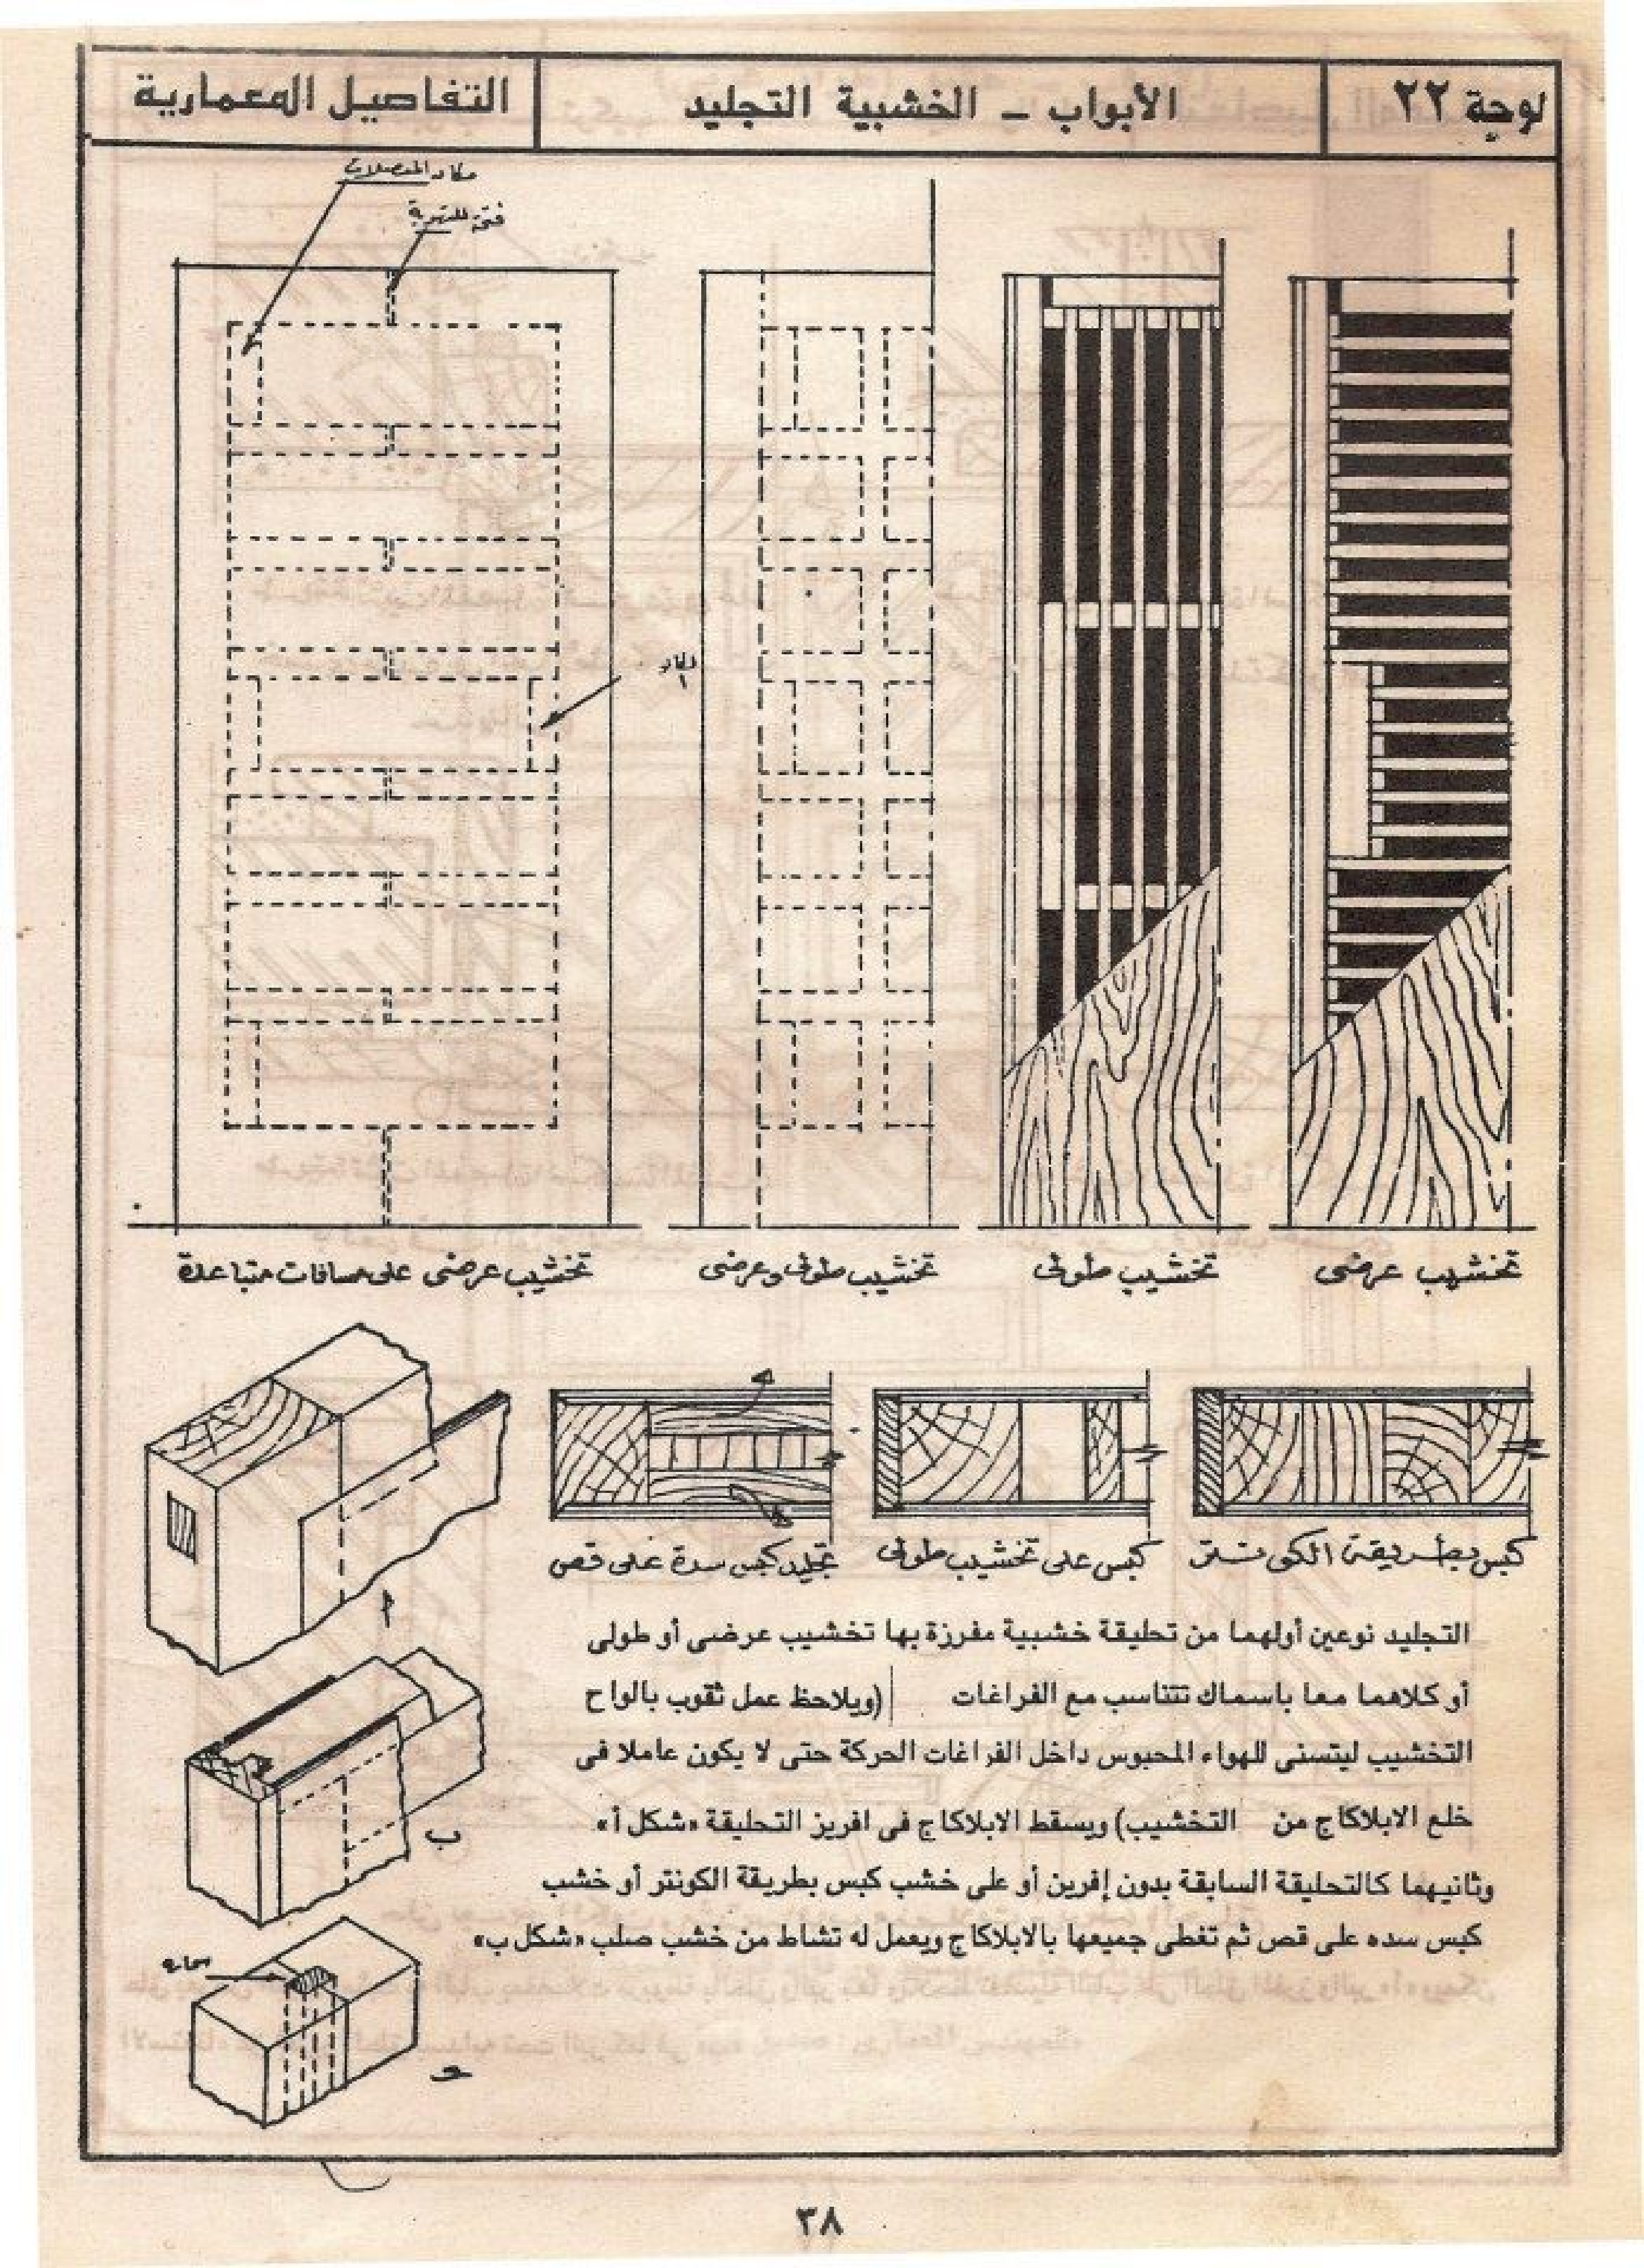 لوجة ٢٢
الأبواب - الخشبية التجليد
التفاصيل المعمارية
مكان المفصلات
فتحة للتهوية
تخشيب عرضى
تخشيب طولى
تخشيب طولى وعرضى
تخشيب عرضى على مسافات متباعدة
كبس بطريقة الكونتر
كبس على تخشيب طولى
تجليد كبس سدة على قص
أ
ب
التجليد نوعين أولهما من تحليقة خشبية مفرزة بها تخشيب عرضى أو طولى
أو كلاهما معا باسماك تتناسب مع الفراغات (ويلاحظ عمل ثقوب بالواح
التخشيب ليتسنى للهواء المحبوس داخل الفراغات الحركة حتى لا يكون عاملا فى
خلع الابلاكاج من التخشيب) ويسقط الابلاكاج فى افريز التحليقة «شكل أ».
وثانيهما كالتحليقة السابقة بدون إفرين أو على خشب كبس بطريقة الكونتر أو خشب
كبس سده على قص ثم تغطى جميعها بالابلاكاج ويعمل له تشاط من خشب صلب «شكل ب»
ح
٣٨